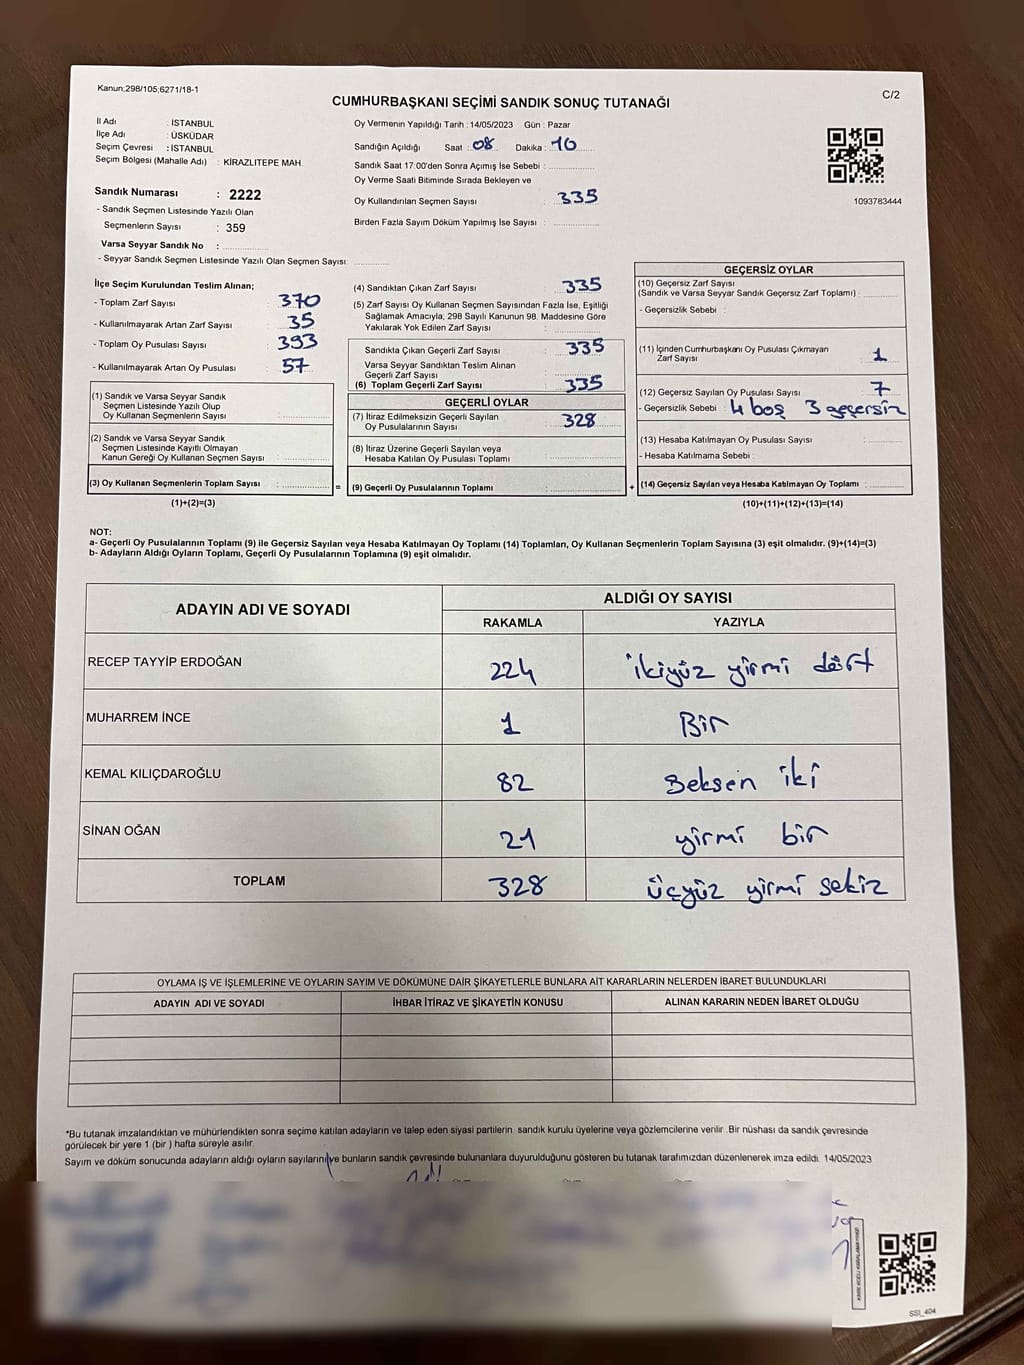 Kanun;298/105;6271/18-1
CUMHURBAŞKANI SEÇİMİ SANDIK SONUÇ TUTANAĞI
C/2
İl Adı : İSTANBUL
İlçe Adı : ÜSKÜDAR
Seçim Çevresi : İSTANBUL
Seçim Bölgesi (Mahalle Adı) : KİRAZLITEPE MAH.
Sandık Numarası : 2222
- Sandık Seçmen Listesinde Yazılı Olan
Seçmenlerin Sayısı : 359
Varsa Seyyar Sandık No :
- Seyyar Sandık Seçmen Listesinde Yazılı Olan Seçmen Sayısı:
Oy Vermenin Yapıldığı Tarih : 14/05/2023 Gün : Pazar
Sandığın Açıldığı Saat : 08 Dakika : 10
Sandık Saat 17:00'den Sonra Açımış İse Sebebi :
Oy Verme Saati Bitiminde Sırada Bekleyen ve
Oy Kullandırılan Seçmen Sayısı : 335
Birden Fazla Sayım Döküm Yapılmış İse Sayısı :
1093783444
İlçe Seçim Kurulundan Teslim Alınan;
- Toplam Zarf Sayısı : 370
- Kullanılmayarak Artan Zarf Sayısı : 35
- Toplam Oy Pusulası Sayısı : 393
- Kullanılmayarak Artan Oy Pusulası : 57
(1) Sandık ve Varsa Seyyar Sandık
Seçmen Listesinde Yazılı Olup
Oy Kullanan Seçmenlerin Sayısı :
(2) Sandık ve Varsa Seyyar Sandık
Seçmen Listesinde Kayıtlı Olmayan
Kanun Gereği Oy Kullanan Seçmen Sayısı :
(3) Oy Kullanan Seçmenlerin Toplam Sayısı :
(1)+(2)=(3)
(4) Sandıktan Çıkan Zarf Sayısı : 335
(5) Zarf Sayısı Oy Kullanan Seçmen Sayısından Fazla İse, Eşitliği
Sağlamak Amacıyla; 298 Sayılı Kanunun 98. Maddesine Göre
Yakılarak Yok Edilen Zarf Sayısı :
Sandıkta Çıkan Geçerli Zarf Sayısı : 335
Varsa Seyyar Sandıktan Teslim Alınan
Geçerli Zarf Sayısı :
(6) Toplam Geçerli Zarf Sayısı : 335
GEÇERLİ OYLAR
(7) İtiraz Edilmeksizin Geçerli Sayılan
Oy Pusulalarının Sayısı : 328
(8) İtiraz Üzerine Geçerli Sayılan veya
Hesaba Katılan Oy Pusulası Toplamı :
= (9) Geçerli Oy Pusulalarının Toplamı :
GEÇERSİZ OYLAR
(10) Geçersiz Zarf Sayısı
(Sandık ve Varsa Seyyar Sandık Geçersiz Zarf Toplamı) :
- Geçersizlik Sebebi :
(11) İçinden Cumhurbaşkanı Oy Pusulası Çıkmayan
Zarf Sayısı : 1
(12) Geçersiz Sayılan Oy Pusulası Sayısı : 7
- Geçersizlik Sebebi : 4 boş 3 geçersiz
(13) Hesaba Katılmayan Oy Pusulası Sayısı :
- Hesaba Katılmama Sebebi :
+ (14) Geçersiz Sayılan veya Hesaba Katılmayan Oy Toplamı :
(10)+(11)+(12)+(13)=(14)
NOT:
a- Geçerli Oy Pusulalarının Toplamı (9) ile Geçersiz Sayılan veya Hesaba Katılmayan Oy Toplamı (14) Toplamları, Oy Kullanan Seçmenlerin Toplam Sayısına (3) eşit olmalıdır. (9)+(14)=(3)
b- Adayların Aldığı Oyların Toplamı, Geçerli Oy Pusulalarının Toplamına (9) eşit olmalıdır.
ADAYIN ADI VE SOYADI
ALDIĞI OY SAYISI
RAKAMLA YAZIYLA
RECEP TAYYİP ERDOĞAN 224 ikiyüz yirmi dört
MUHARREM İNCE 1 Bir
KEMAL KILIÇDAROĞLU 82 seksen iki
SİNAN OĞAN 21 yirmi bir
TOPLAM 328 üçyüz yirmi sekiz
OYLAMA İŞ VE İŞLEMLERİNE VE OYLARIN SAYIM VE DÖKÜMÜNE DAİR ŞİKAYETLERLE BUNLARA AİT KARARLARIN NELERDEN İBARET BULUNDUKLARI
ADAYIN ADI VE SOYADI İHBAR İTİRAZ VE ŞİKAYETİN KONUSU ALINAN KARARIN NEDEN İBARET OLDUĞU
*Bu tutanak imzalandıktan ve mühürlendikten sonra seçime katılan adayların ve talep eden siyasi partilerin sandık kurulu üyelerine veya gözlemcilerine verilir .Bir nüshası da sandık çevresinde
görülecek bir yere 1 (bir ) hafta süreyle asılır.
Sayım ve döküm sonucunda adayların aldığı oyların sayılarını ve bunların sandık çevresinde bulunanlara duyurulduğunu gösteren bu tutanak tarafımızdan düzenlenerek imza edildi. 14/05/2023
SSI_404